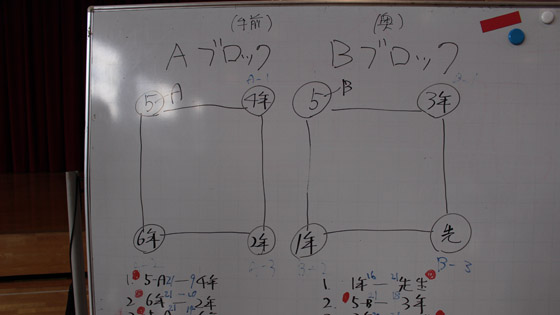 (午前)
(奥)
Aブロック
Bブロック
A-1
5-A
4年
5
B
3年
6年
2年
1年
先
2-3
3-2
B-3
1. 5-A 21-9 4年
2. 6年 2年
1. 1年 16-21 先生
2. 5-B 3年